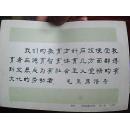 我们的教育方针应该使受教
育者在德育智育体育几方面都得
到发展成为有社会主义觉悟的有
文化的劳动者 毛主席语录